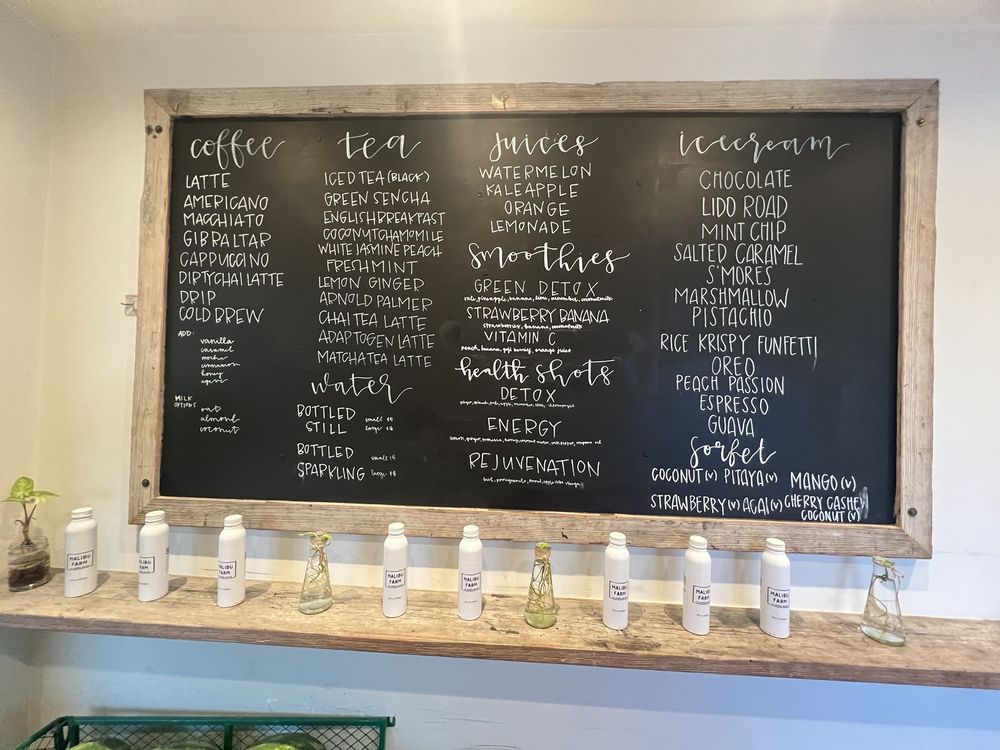 coffee
LATTE
AMERICANO
MACCHIATO
GIBRALTAR
CAPPUCCINO
DIRTY CHAI LATTE
DRIP
COLD BREW
ADD:
vanilla
caramel
mocha
cinnamon
honey
agave
MILK
OPTIONS
oat
almond
coconut
tea
ICED TEA (BLACK)
GREEN SENCHA
ENGLISH BREAKFAST
COCONUT CHAMOMILE
WHITE JASMINE PEACH
FRESH MINT
LEMON GINGER
ARNOLD PALMER
CHAI TEA LATTE
ADAPTOGEN LATTE
MATCHA TEA LATTE
water
BOTTLED
STILL
small $5
large $8
BOTTLED
SPARKLING
small $5
large $8
Juices
WATERMELON
KALE APPLE
ORANGE
LEMONADE
Smoothies
GREEN DETOX
kale, pineapple, banana, lime, cucumber, coconutmilk
STRAWBERRY BANANA
strawberries, banana, coconutmilk
VITAMIN C
peach, banana, goji berries, orange juice
health shots
DETOX
ENERGY
REJUVENATION
icecream
CHOCOLATE
LIDO ROAD
MINT CHIP
SALTED CARAMEL
S'MORES
MARSHMALLOW
PISTACHIO
RICE KRISPY FUNFETTI
OREO
PEACH PASSION
ESPRESSO
GUAVA
Sorbet
COCONUT (V) PITAYA (V) MANGO (V)
STRAWBERRY (V) ACAI (V) CHERRY CASHEW
COCONUT (V)
MALIBU
FARM
MALIBU
FARM
MALIBU
FARM
MALIBU
FARM
MALIBU
FARM
MALIBU
FARM
MALIBU
FARM
MALIBU
FARM